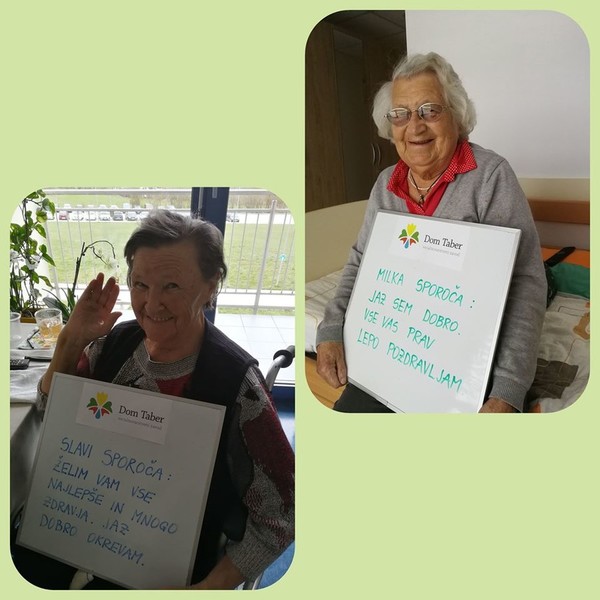 Dom Taber
MILKA SPOROČA:
JAZ SEM DOBRO.
VSE VAS PRAV
LEPO POZDRAVLJAM
Dom Taber
SLAVI SPOROČA:
ŽELIM VAM VSE
NAJLEPŠE IN MNOGO
ZDRAVJA. JAZ
DOBRO OKREVAM.